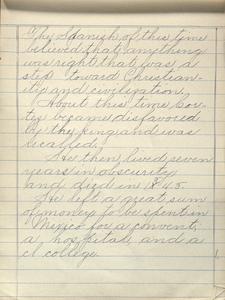 The Spanish of this time
believed that anything
was right that was a
step toward Christian-
ity and civilization.
About this time Cor-
tez became disfavored
by the king and was
recalled.
He then lived seven
years in obscurity
and died in
He left a great sum
of money to be spent in
Mexico for a convent,
a hospital, and a
college.